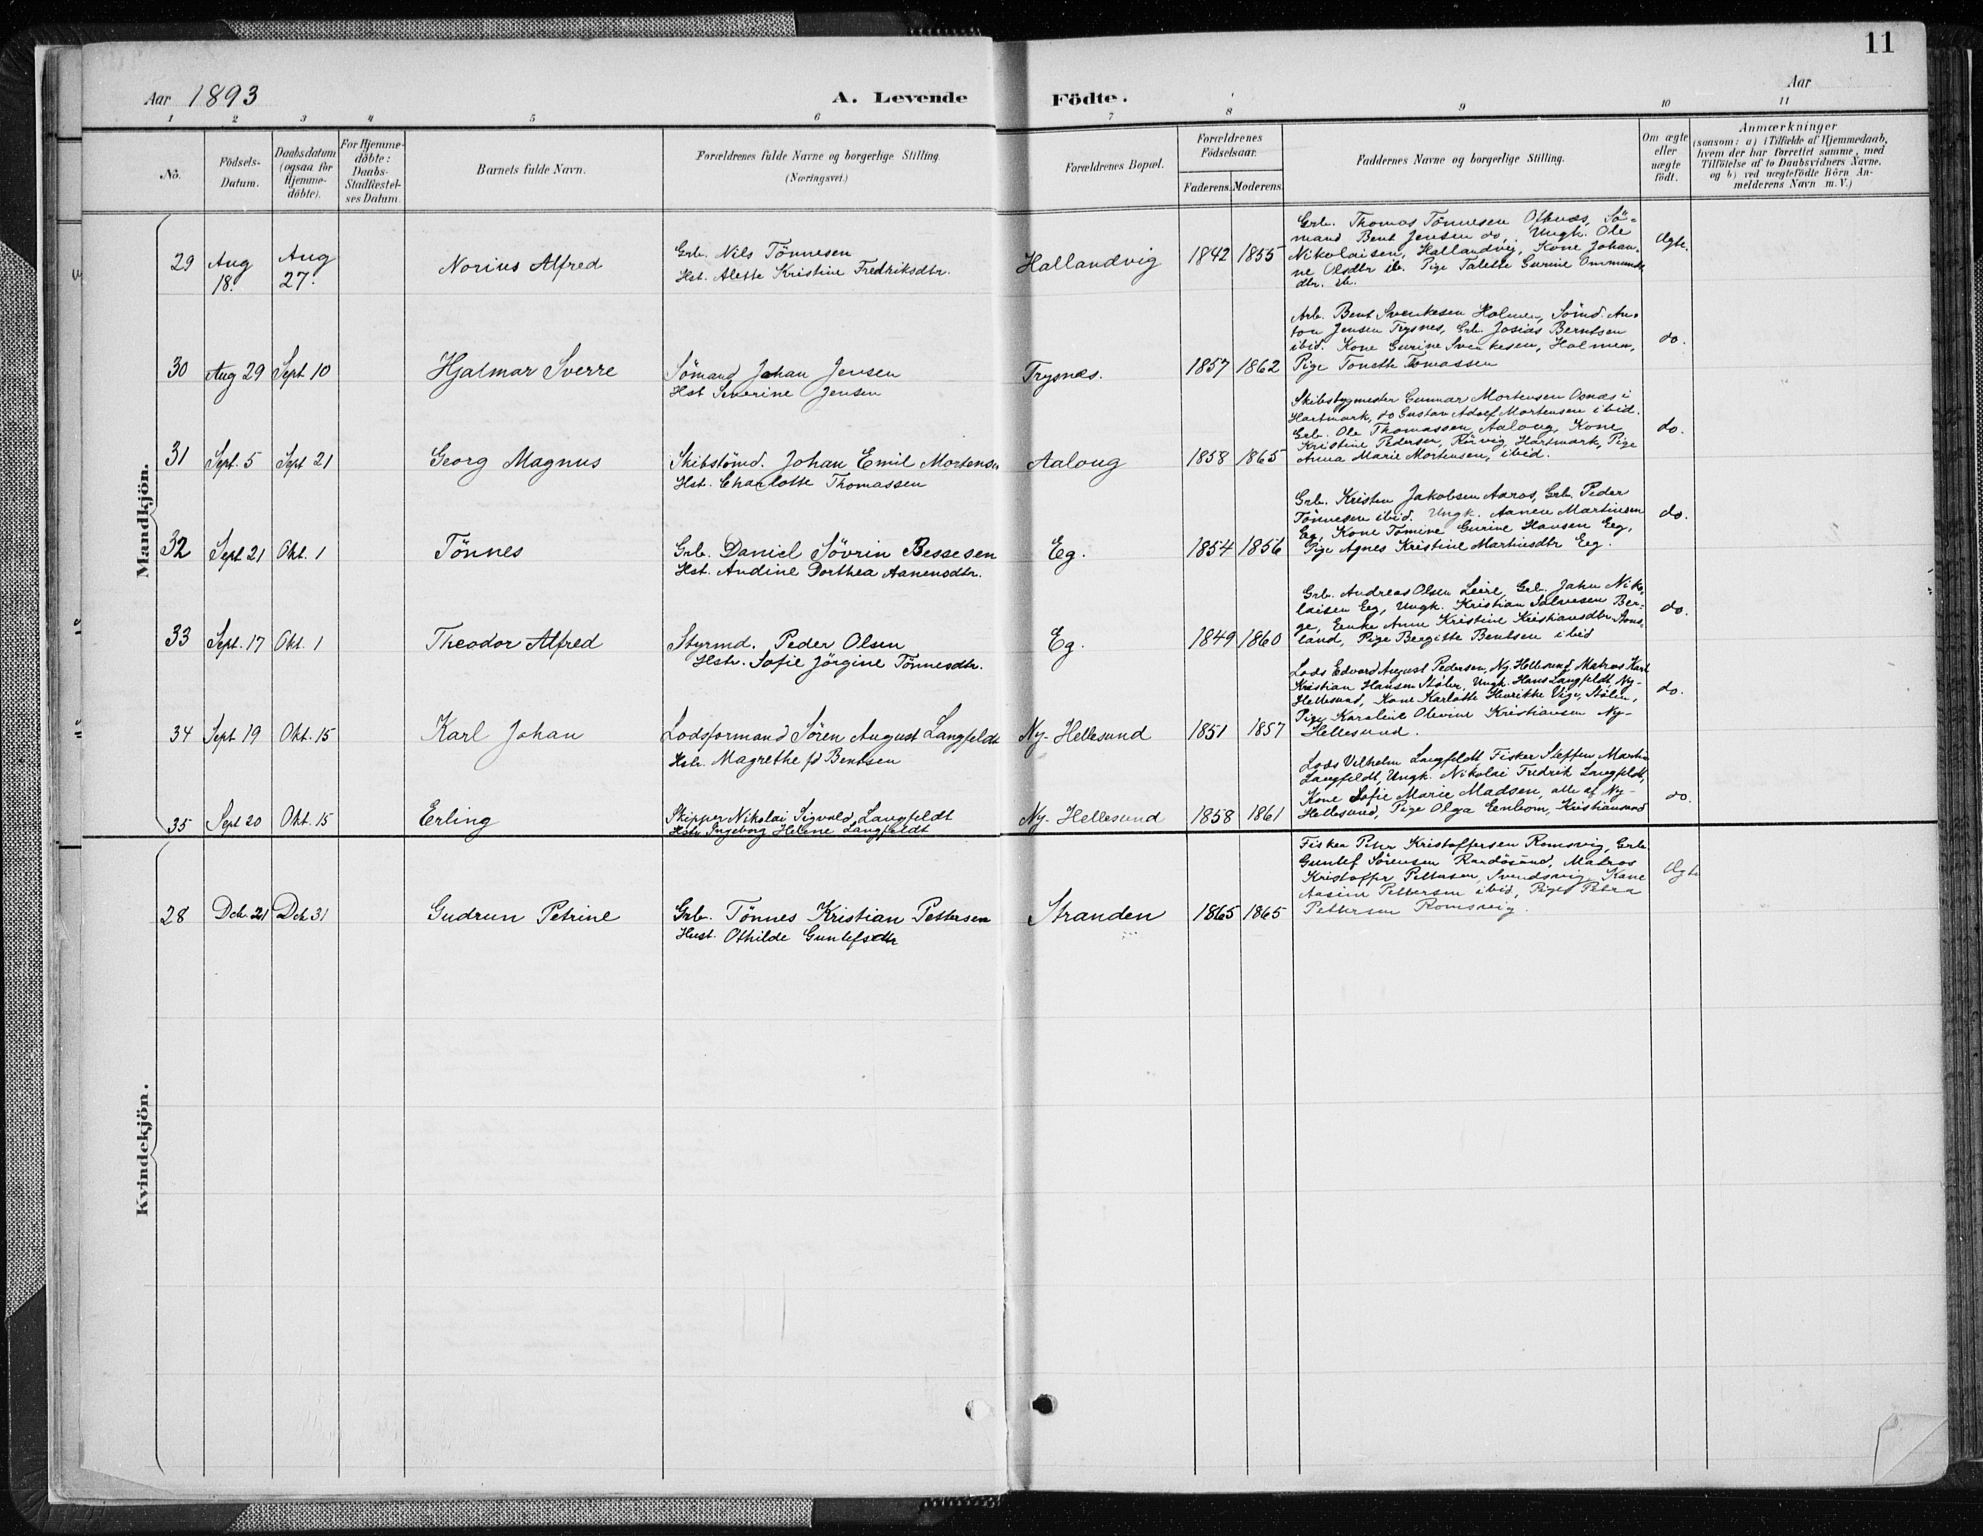 11
Aar 1893
A. Levende Födte.
Aar
1 2 3 4 5 6 7 8 9 10 11
No.
Födsels-Datum.
Daabsdatum (ogsaa for Hjemmedöbte).
For Hjemmedöbte: Daabs-Stadfæstelses Datum.
Barnets fulde Navn.
Forældrenes fulde Navne og borgerlige Stilling.
(Næringsvei.)
Forældrenes Bopæl.
Forældrenes Födselsaar.
Faderens. Moderens.
Faddernes Navne og borgerlige Stilling.
Om ægte eller uægte födt.
Anmærkninger
(saasom: a) i Tilfælde af Hjemmedaab, hvem der har forrettet samme, med Tilföielse af to Daabsvidners Navne, og b) ved uægtefödte Börn Anmelderens Navn m. V.)
Mandkjön.
29 Aug 18. Aug 27. Norius Alfred
Grb. Nils Tönnesen
Hst. Alette Kristine Fredriksdtr.
Hallandvig 1842 1855
Grb. Thomas Tönnesen, Sö-
mand Bent Jensen do, Ungk. Ole
Nikolaisen, Hallandvig, Kone Johan-
ne Olsdtr ib. Pige Talette Gurine Ommunds
dtr. ib.
Ægte.
30 Aug 29 Sept 10 Hjalmar Sverre
Sömand Johan Jensen
Hst Severine Jensen
Trysnes. 1857 1862
Arb. Bent Svenkesen Holmen, Sömd. An-
ton Jensen Trysnes, Grb. Josias Berntsen
ibid. Kone Gurine Svenkesen, Holmen,
Pige Tonette Tomassen
do.
31 Sept. 5 Sept 21 Georg Magnus
Skibstömd. Johan Emil Mortensen
Hst. Charlotte Thomassen
Aaloug 1858 1865
Skibsbygmester Gunnar Mortensen Osnæs i
Hartmark, do Gustav Adolf Mortensen ibid.
Grb. Ole Thomassen Aaloug, Kone
Kristine Pedersen, Rörvig, Hartmark, Pige
Anna Marie Mortensen, ibid.
do.
32 Sept 21 Okt. 1 Tönnes
Grb. Daniel Sövrin Bessesen
Hst. Andine Dorthea Aanensdtr.
Eg. 1854 1856
Grb. Kristen Jakobsen Aaros, Grb. Peder
Tönnesen ibid. Ungk. Aanen Martinsen
Eg, Kone Tomine Gurine Hansen Eeg,
Pige Agnes Kristine Martinsdtr Eeg.
do.
33 Sept. 17 Okt. 1 Theodor Alfred
Styrmd. Peder Olsen
Hstr. Sofie Jörgine Tönnesdtr.
Eg. 1849 1860
Grb. Andreas Olsen Leire, Grb. Jahn Niko-
laisen Eeg, Ungk. Kristian Salvesen Ber-
ge, Enke Anne Kristine Kristiansdtr
land, Pige Bergitte Bentsen ibid
do.
34 Sept 19 Okt. 15 Karl Johan
Lodsformand Sören August Langfeldt
Hstr. Magrethe fd Bentsen
Ny-Hellesund 1851 1857
Lods Edvard August Pedersen, Ny Hellesund, Matros Karl
Kristian Hansen Stölen, Ungk. Hans Langfeldt, Ny-
Hellesund, Kone Karlotte Henrikke Vige, Stölen,
Pige Karoline Olevine Kristiansen Ny-
Hellesund.
do.
35 Sept 20 Okt. 15 Erling
Skipper Nikolai Sigvald Langfeldt
Hstr Ingeborg Helene Langfeldt
Ny. Hellesund 1858 1861
Lods Vilhelm Langfeldt, Fisker Steffen Martin
Langfeldt, Ungk. Nikolai Fredrik Langfeldt,
Kone Sofie Marie Madsen, alle af Ny-
Hellesund, Pige Olga Eenhom, Kristianssand
do.
Kvindekjön.
28 Dcb. 21 Dcb 31 Gudrun Petrine
Grb. Tönnes Kristian Pettersen
Hust. Othilde Gunlefsdtr
Stranden 1865 1865
Fisker Peter Kristoffersen Romsvig, Grb.
Gunlef Sörensen Randösund, Matros
Kristoffer Pettersen, Svendsvig, Kone
Aasine Pettersen ibid, Pige Petra
Pettersen Romsvig.
Ægte